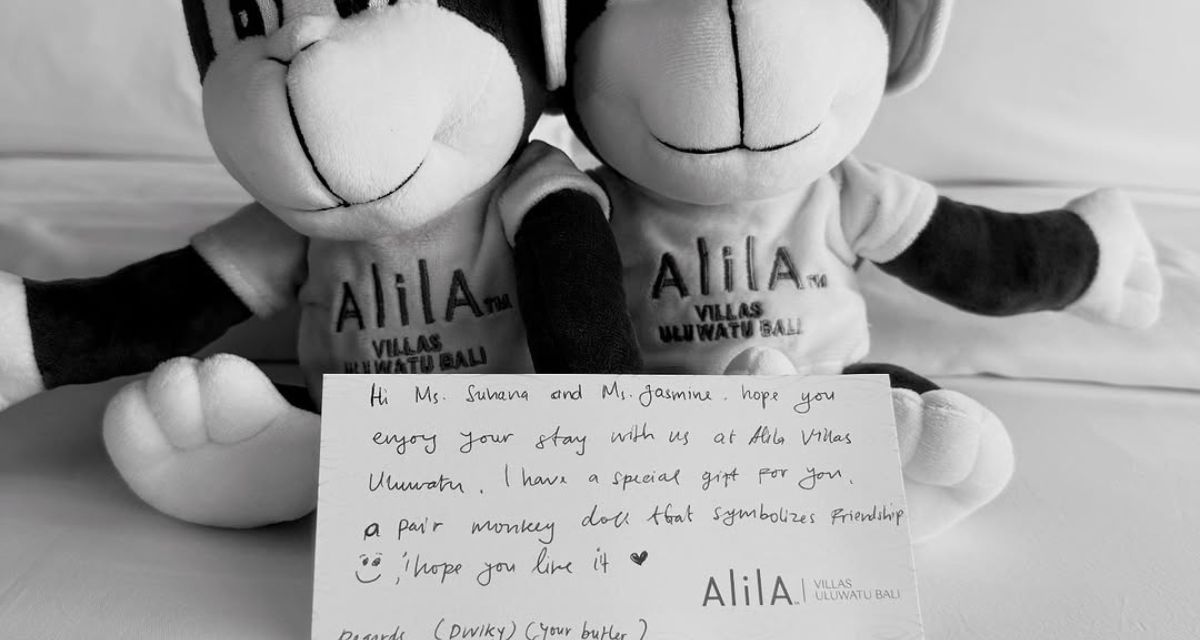 AlilA™
VILLAS
ULUWATU BALI
AlilA™
VILLAS
ULUWATU BALI
Hi Ms. Suhana and Ms. Jasmine. hope you
enjoy your stay with us at Alila Villas
Uluwatu. I have a special gift for you.
a pair monkey doll that symbolizes Friendship
, I hope you like it ♥
AlilA™ | VILLAS
ULUWATU BALI
Regards (DWIKY) (your butler)